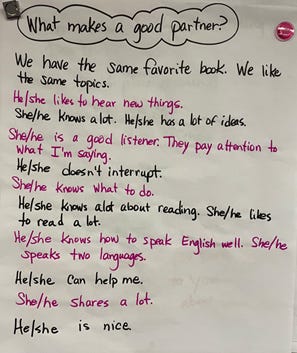 What makes a good partner?
We have the same favorite book. We like
the same topics.
He/she likes to hear new things.
She/he knows a lot. He/she has a lot of ideas.
She/he is a good listener. They pay attention to
what I'm saying.
He/she doesn't interrupt.
She/he knows what to do.
He/she knows alot about reading. She/he likes
to read a lot.
He/she knows how to speak English well. She/he
speaks two languages.
He/she can help me.
She/he shares a lot.
He/she is nice.